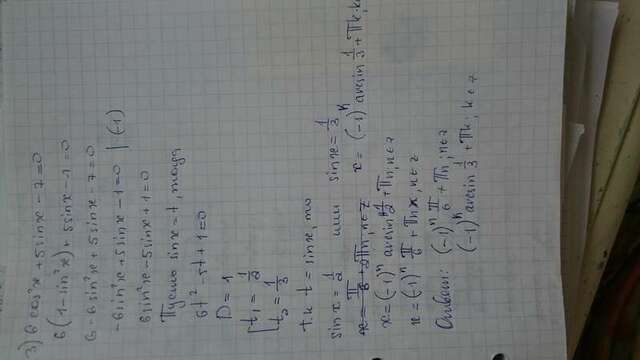 3) 6 cos²x + 5 sinx - 7 = 0
6(1 - sin²x) + 5 sinx - 7 = 0
6 - 6 sin²x + 5 sinx - 7 = 0
-6 sin²x + 5 sinx - 1 = 0 | (-1)
6 sin²x - 5 sinx + 1 = 0
Пусть sinx = t, тогда
6t² - 5t + 1 = 0
D = 1
t₁ = 1/2
t₂ = 1/3
т.к t = sinx, то
sinx = 1/2 или sinx = 1/3
x = (-1)ᵏ arcsin 1/3 + πk; k
x = (-1)ⁿ arcsin 1/2 + πn, n∈z
x = (-1)ⁿ π/6 + πn, n∈z
Ответ: (-1)ⁿ π/6 + πn; n∈z
(-1)ᵏ arcsin 1/3 + πk; k∈z